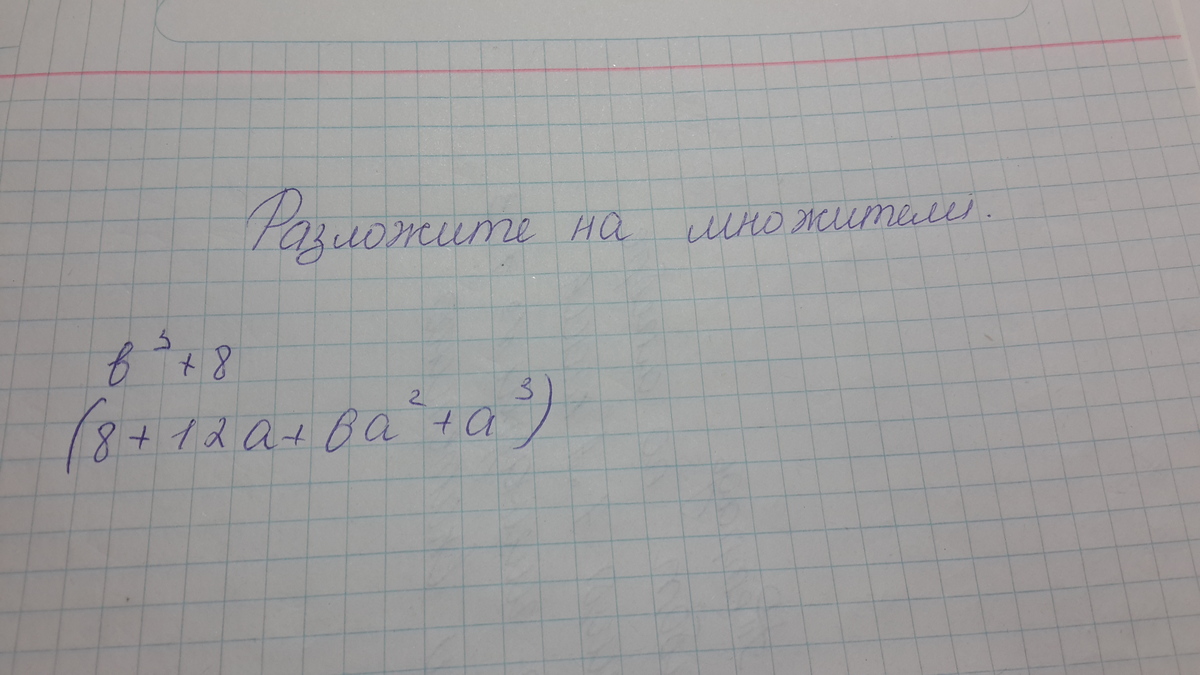 Разложите на множители.
в³+8
(8+12a+6a²+a³)